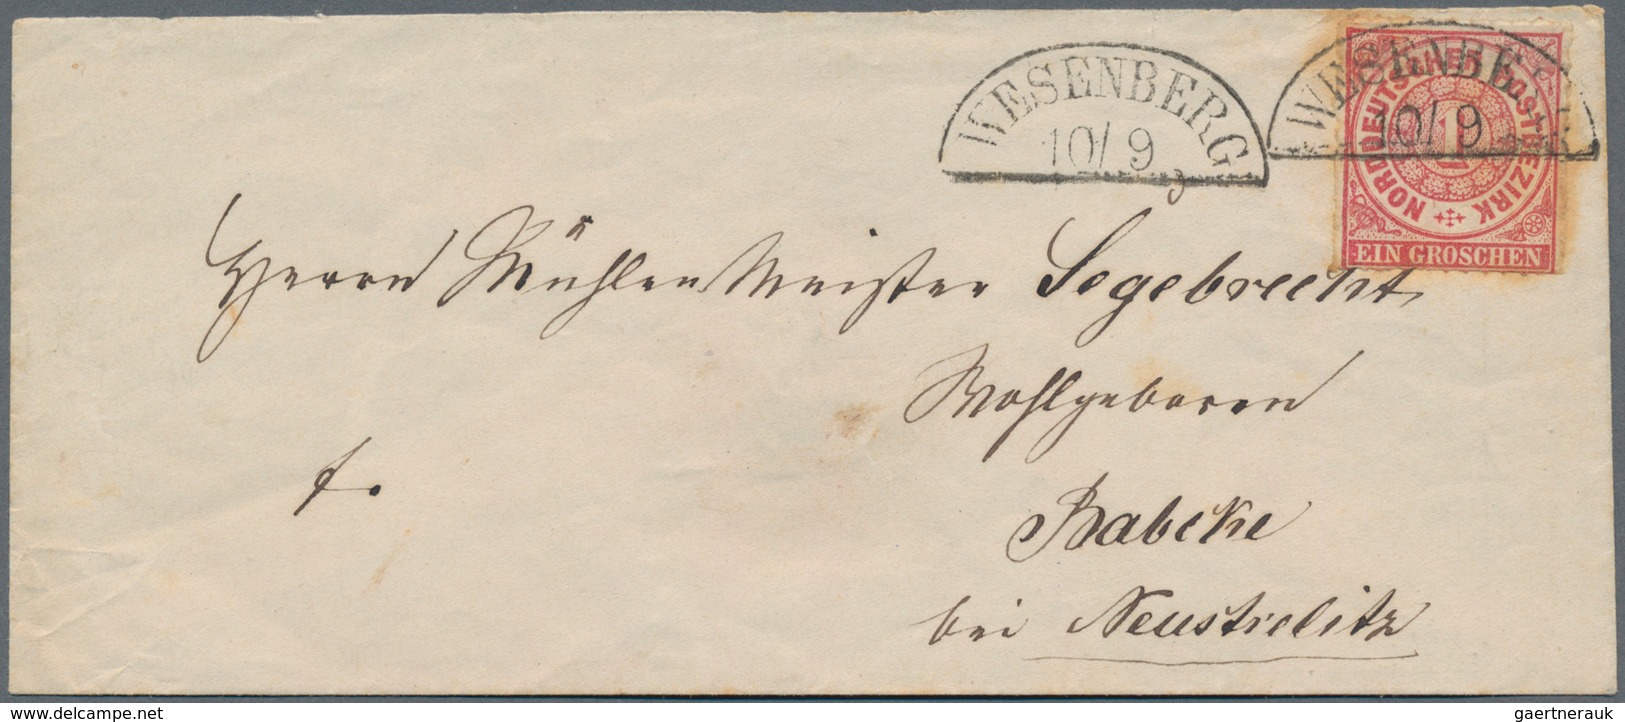 WESENBERG
10/9
WESENBERG
10/9
NORDDEUTSCHER POSTBEZIRK
1
EIN GROSCHEN
Herrn Mühlen Meister Segebrecht
Wohlgeboren
fr.
Babeke
bei Neustrelitz
www.delcampe.net
gaertnerauk